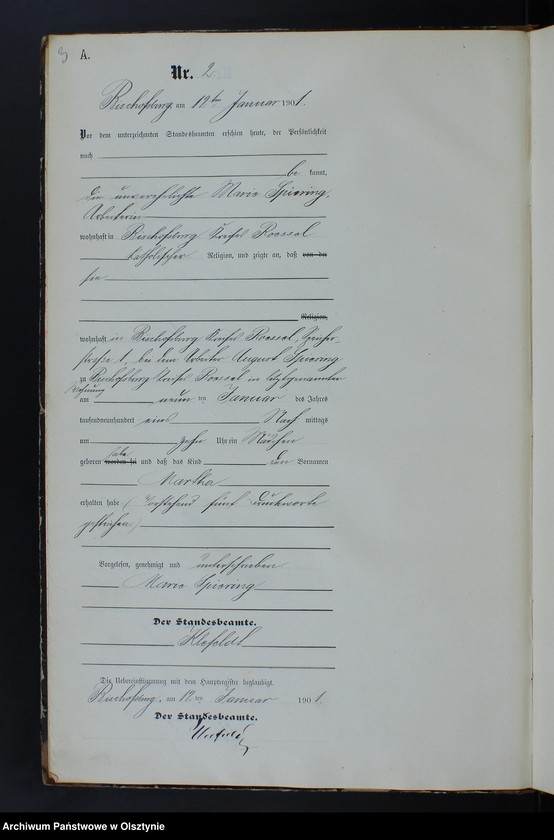 3
A.
Nr. 2
Bischofsburg am 12ten Januar 1901.
Vor dem unterzeichneten Standesbeamten erschien heute, der Persönlichkeit
nach
be kannt,
die unverehelichte Marie Spiering,
Arbeiterin
wohnhaft in Bischofsburg Kreises Roessel
katholischer Religion, und zeigte an, daß von der
sie
Religion,
wohnhaft in Bischofsburg Kreises Roessel,
straße 1, bei dem Arbeiter August Spiering
zu Bischofsburg Kreises Roessel in letztgenannter
Wohnung
am neun ten Januar des Jahres
tausendneunhundert eins Nach mittags
um zehn Uhr ein Mädchen
habe
geboren worden sei und daß das Kind den Vornamen
Martha
erhalten habe. (Vorstehend fünf Druckworte
gestrichen)
Vorgelesen, genehmigt und unterschrieben
Marie Spiering
Der Standesbeamte.
Klefeldt
Die Uebereinstimmung mit dem Hauptregister beglaubigt.
Bischofsburg, am 12. ten Januar 1901.
Der Standesbeamte.
Archiwum Państwowe w Olsztynie